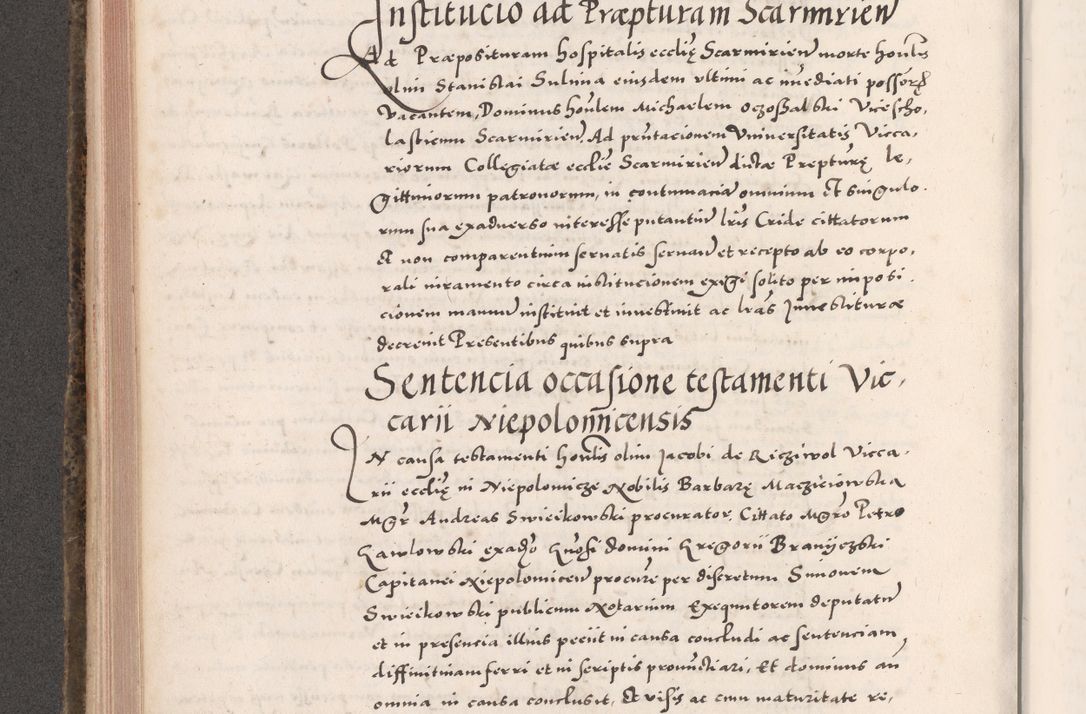 Institucio ad Præpturam Scarmirien
Ad Præposituram hospitalis eccliȩ Scarmirien morte honlis
olim Stanislai Sulima eiusdem ultimi ac imediati possorȩ
vacantem, Dominus honlem Michaelem Oczoszalski Vicescho,
lasticum Scarmirien, Ad pntacionem Universitatis Vicca,
riorum Collegiatæ eccliȩ Scarmirien dictæ Prepturȩ le,
gittimorum patronorum, in contumacia omnium et singulo.
rum sua exadverso interesse putantiu lris Cride cittatorum
et non comparentium servatis servan et recepto ab eo corpo,
rali iuramento circa institucionem exigi solito per imposi
cionem manuu instituit et investiuit ac lras Investituræ
decrevit Presentibus quibus supra
Sentencia occasione testamenti Vic,
carii Niepolomicensis
In causa testamenti honlis olim Jacobi de Ricziwol Vicca,
rii eccliȩ in Niepolomicze Nobilis Barbarȩ Macziciowska
Mgr Andreas Swieikowski procurator, Cittato Mgro Petro
Gawlowski exado Gnosi domini Gregorii Branyczski
Capitanei Niepolomicen procure per discretum Simonem
Swieikowski publicum Notarium Exequutorem deputatu
et in presencia illius peciit in causa concludi ac sentenciam
diffinitivam ferri et in scriptis pronunctiari, Et dominus an
omnia in causa conclusit, Et visis ac cum maturitate re,